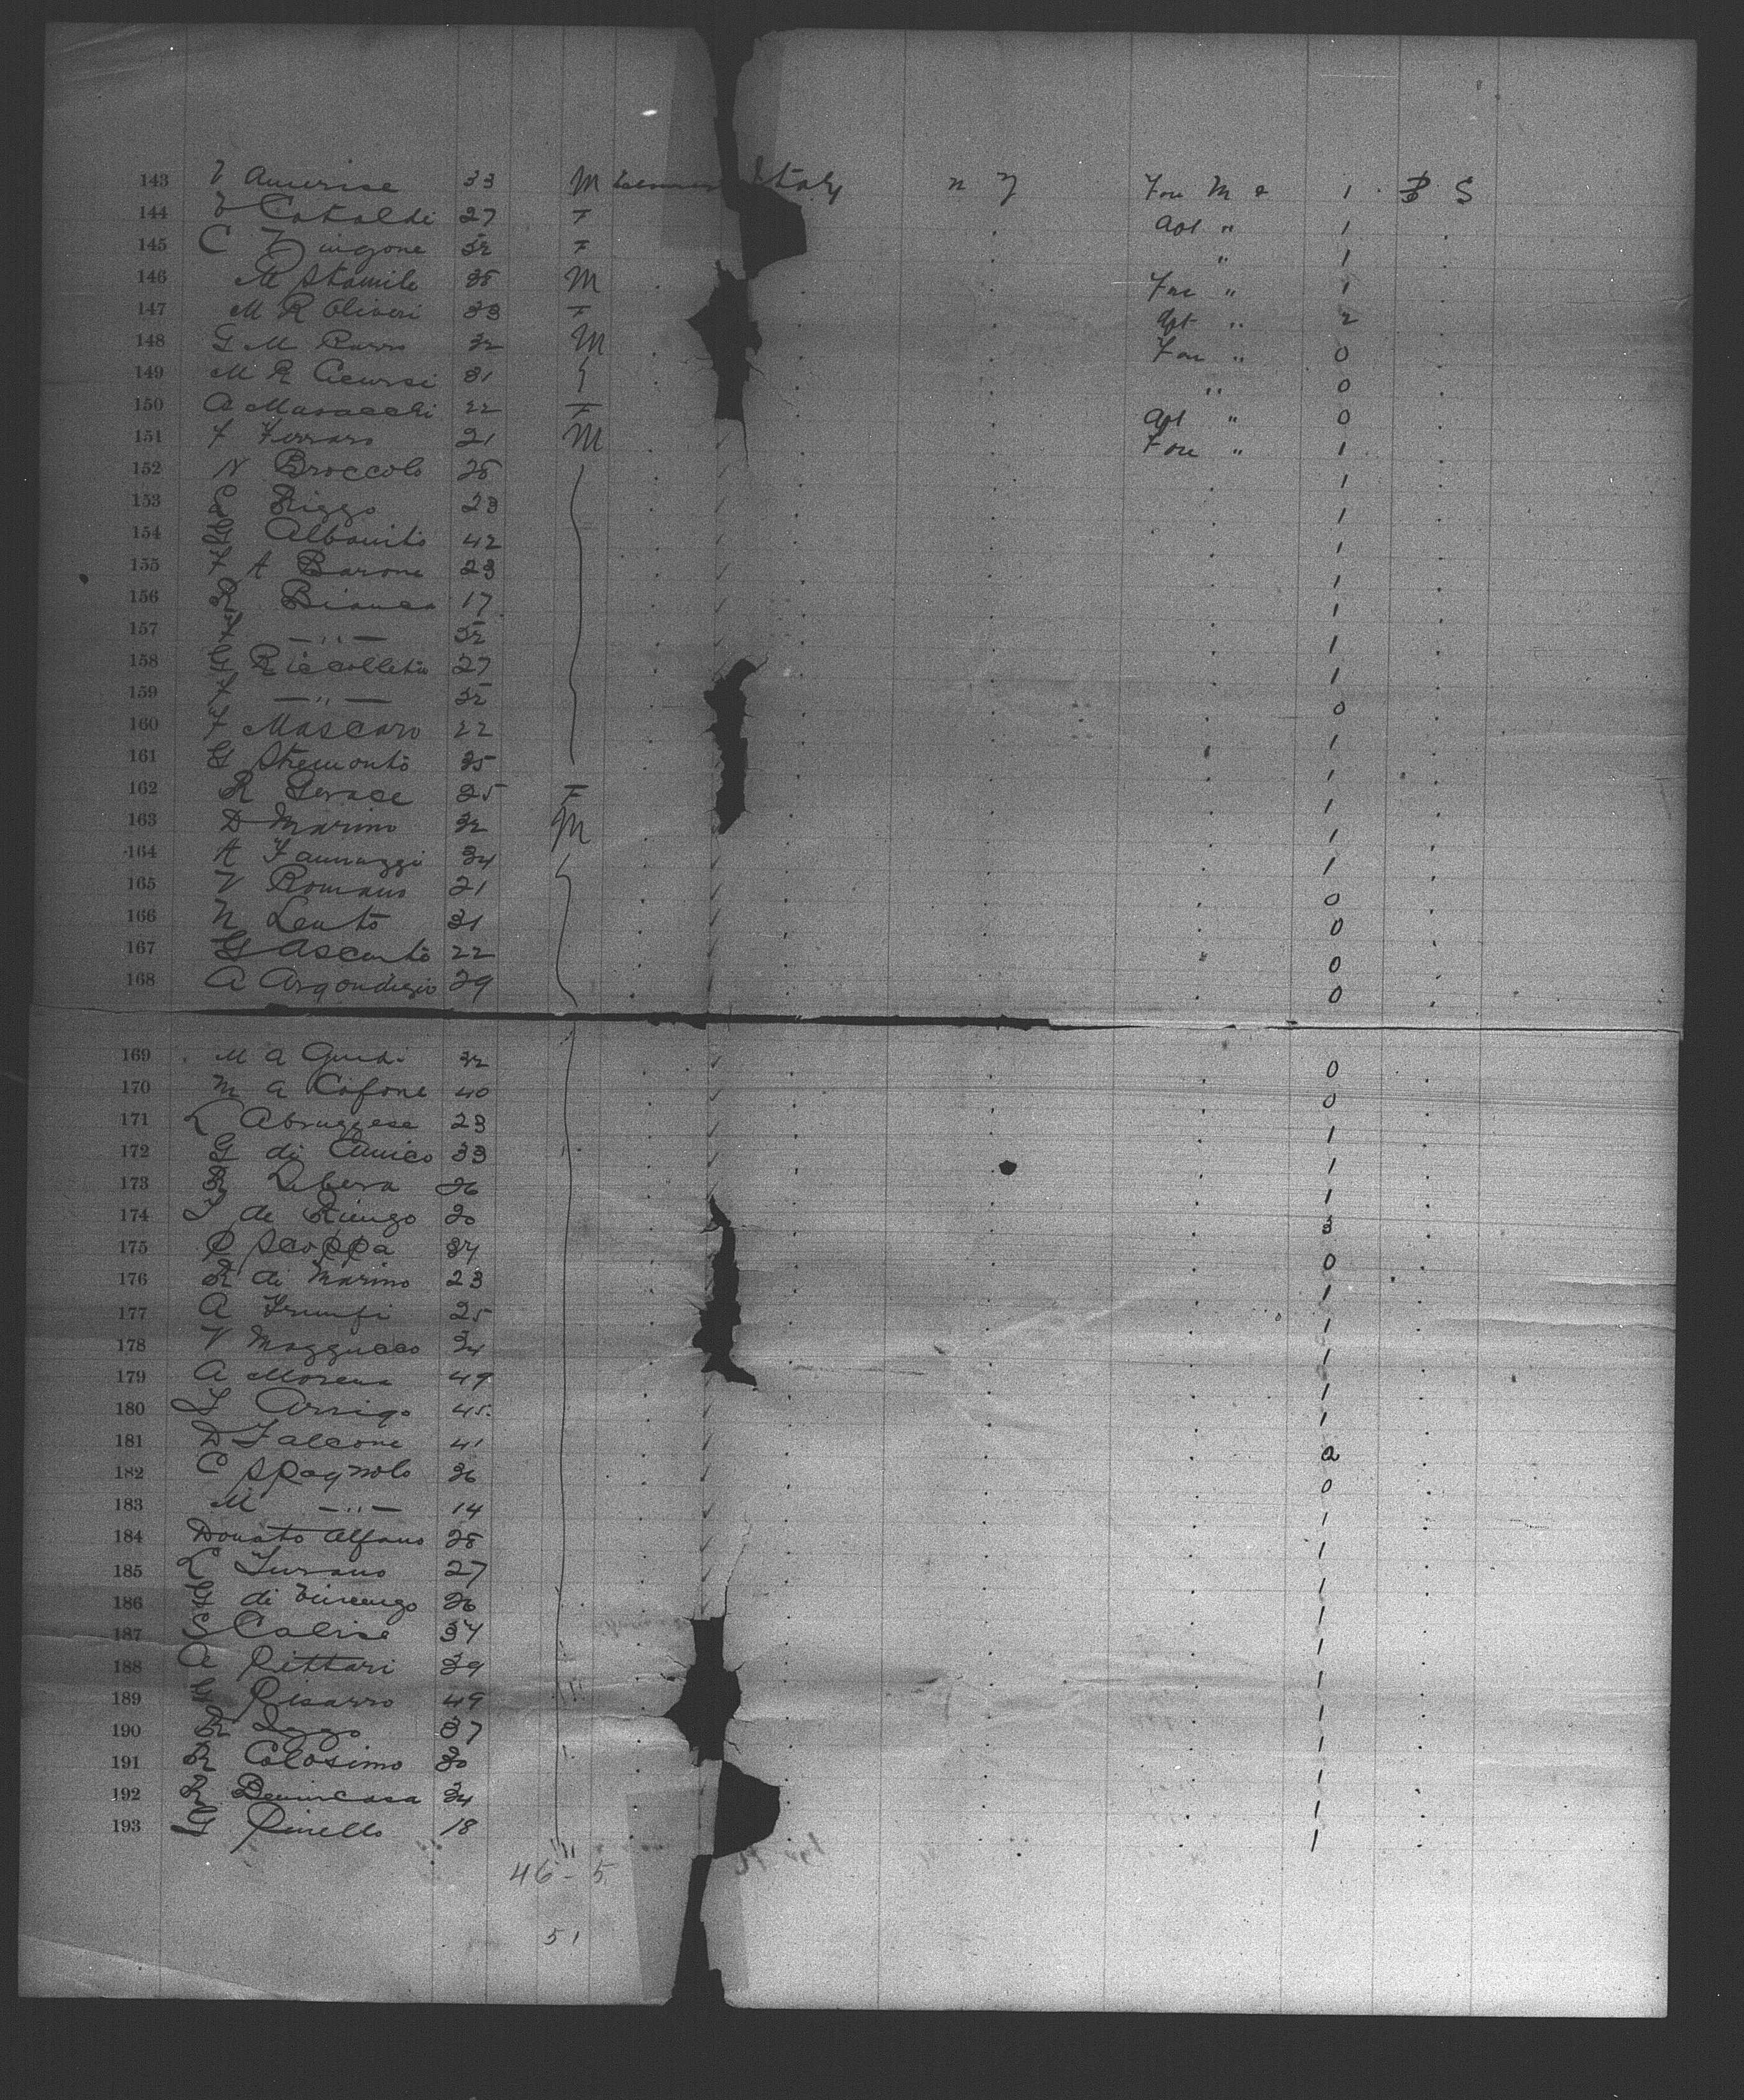 143 V Amerise 33 M Italy n y For M d 1 S
144 V Cataldi 27 F Apt " 1
145 C Zingone 32 F " 1
146 M Stamile 38 M For " 1
147 M R Oliveri 33 F Apt " 2
148 G M Russo 32 M For " 0
149 M R Acursi 31 " 0
150 A Maracchi 22 F Apt " 0
151 F Ferraro 21 M For " 1
152 N Broccolo 28 1
153 Rizzo 23 1
154 Albanito 42 1
155 F A Barone 23 1
156 R Bianco 17 1
157 F —"— 32 1
158 G Riccolletti 27 1
159 F —"— 32 0
160 F Mascaro 22 1
161 G Stremonto 35 1
162 R Gerace 25 F 1
163 D Marino 32 M 1
164 A Iannuzzi 34 1
165 V Romano 21 0
166 N Lento 31 0
167 G Ascento 22 0
168 A Argondizzo 29 0
169 M A Guidi 32 0
170 M A Cofone 40 0
171 L Abruzzese 23 1
172 G di Amico 33 1
173 R Libera 26 1
174 de Rienzo 30 3
175 P Scoppa 34 0
176 R di Marino 23 1
177 A 25 1
178 V Mazzucco 34 1
179 A Morena 49 1
180 Arrigo 45 1
181 D Falcone 41 2
182 C Spagnolo 36 0
183 M —"— 14 1
184 Donato Alfano 28 1
185 L Turano 27 1
186 G di Vincenzo 26 1
187 S Calise 34 1
188 A Pittari 39 1
189 G Pisarro 49 1
190 R Izzo 37 1
191 R Colosimo 30 1
192 R Benincasa 34 1
193 G Pinello 18 1
46 - 5
51